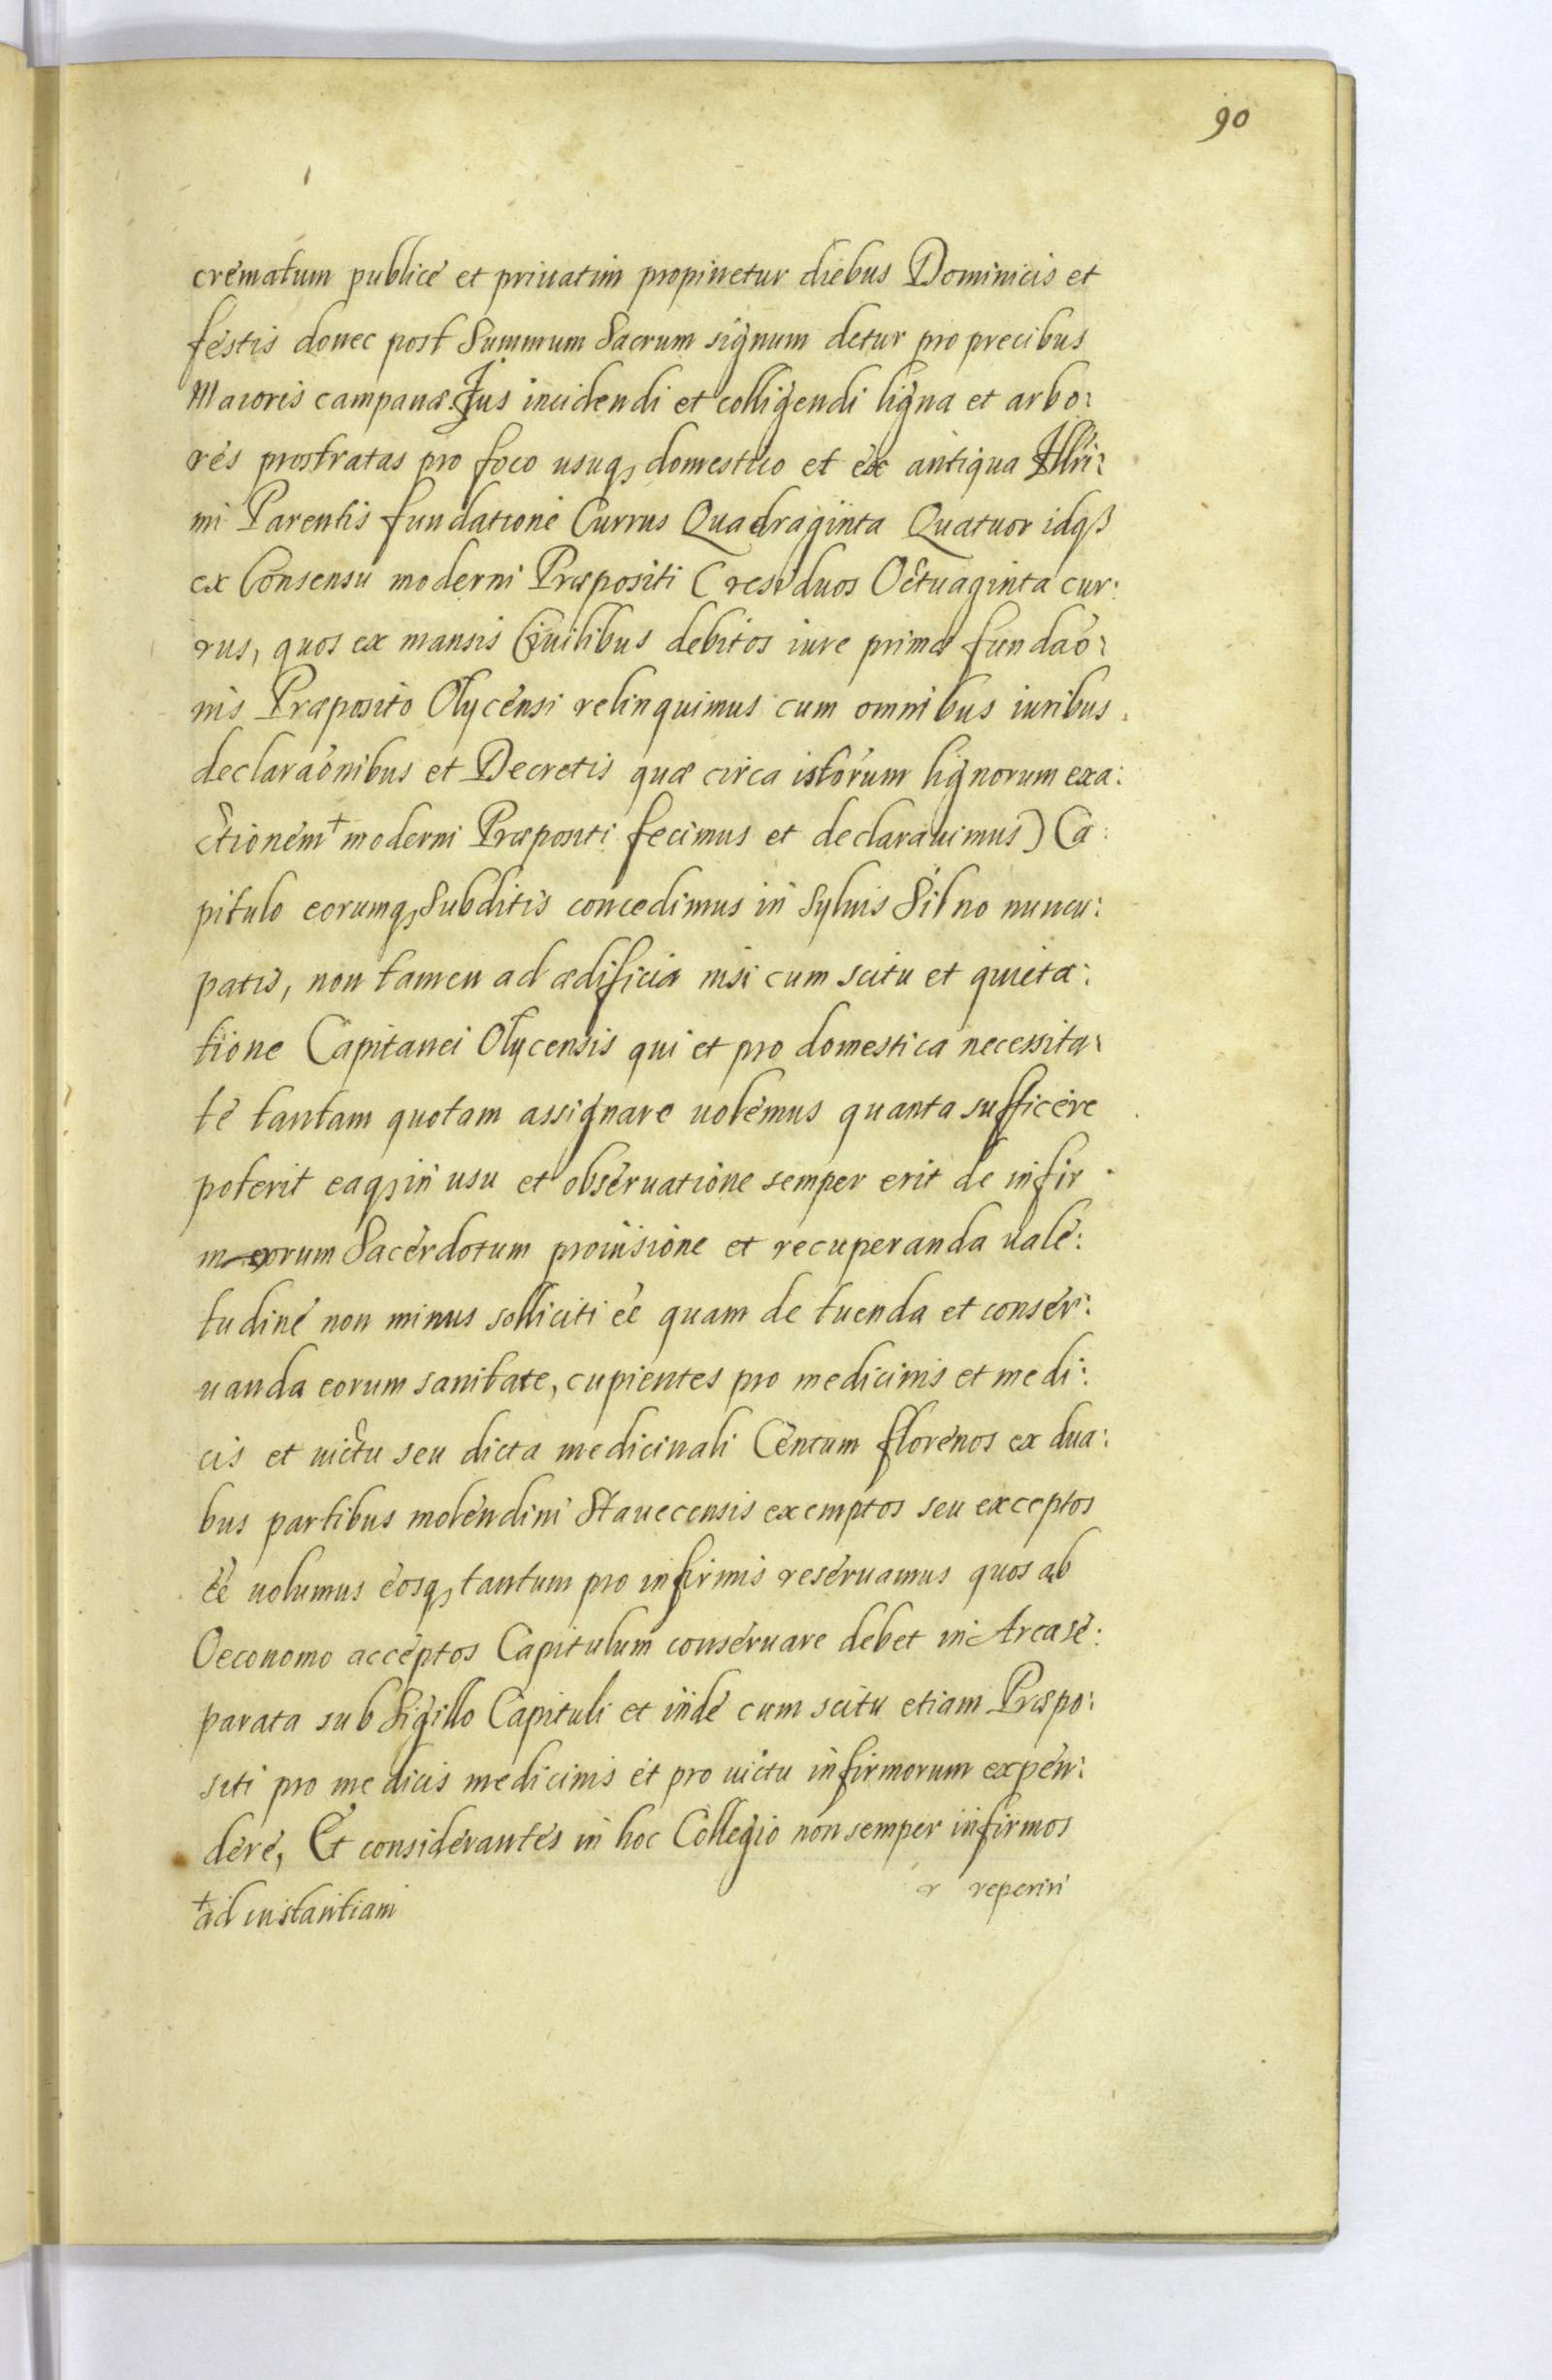 90
crematum publice et priuatim propinetur diebus Dominicis et
festis donec post Summum Sacrum signum detur pro precibus
Maioris campanæ. Jus incidendi et colligendi ligna et arbo:
res prostratas pro foco usuq, domestico et ex antiqua Illri:
mi Parentis fundatione Currus Quadraginta Quatuor idqß
ex Consensu moderni Præpositi (residuos Octuaginta cur:
rus, quos ex mansis Ciuilibus debitos iure primæ fundaō:
nis Præposito Olycensi relinquimus cum omnibus iuribus,
declaraōnibus et Decretis quæ circa istorum lignorum exa:
ctionem+ moderni Præpositi fecimus et declarauimus) Ca:
pitulo eorumq, Subditis concedimus in Syluis Silno nuncu:
patis, non tamen ad ædificia nisi cum scitu et quieta:
tione Capitanei Olycensis qui et pro domestica necessita:
te tantam quotam assignare uolemus quanta sufficere
poterit eaq, in usu et obseruatione semper erit de infir:
morum Sacerdotum prouisione et recuperanda uale:
tudine non minus solliciti eē quam de tuenda et conser:
uanda eorum sanitate, cupientes pro medicinis et medi:
cis et uictu seu dicta medicinali Centum florenos ex dua:
bus partibus molendini Stauecensis exemptos seu exceptos
eē uolumus eosq, tantum pro infirmis reseruamus quos ab
Oeconomo acceptos Capitulum conseruare debet in Arca se:
parata sub Sigillo Capituli et inde cum scitu etiam Præpo:
siti pro medicis medicinis et pro uictu infirmorum expen:
dere, Et considerantes in hoc Collegio non semper infirmos
r reperiri
+ad instantiam